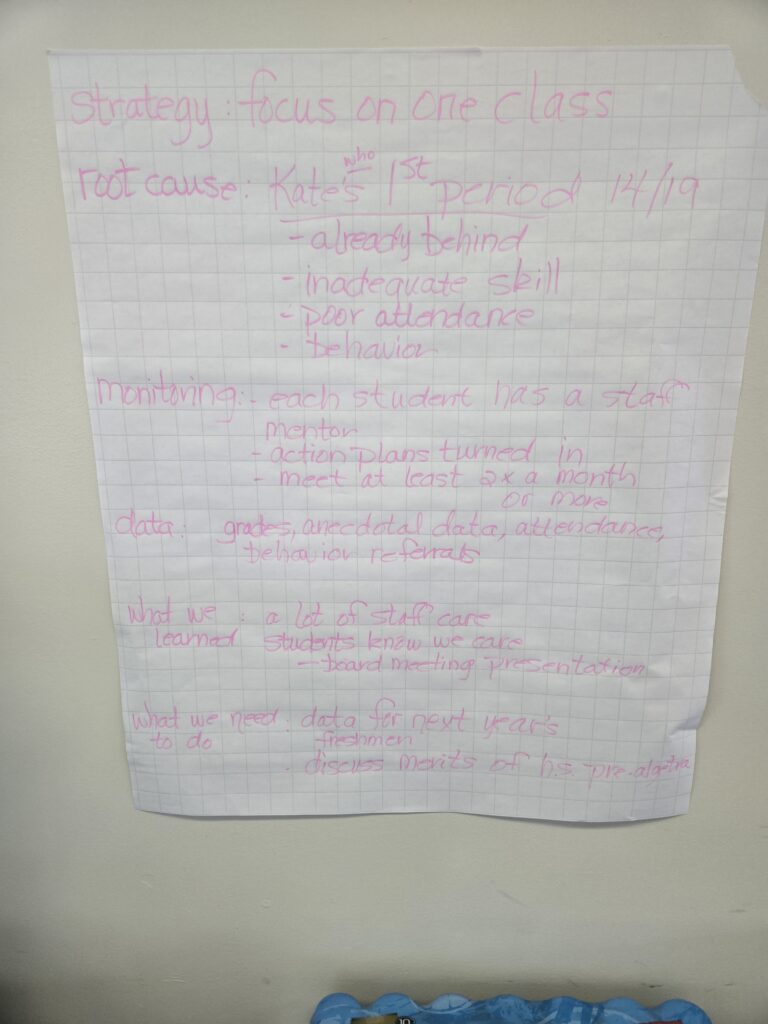 strategy: focus on one class
who
root cause: Kate's 1st period 14/19
- already behind
- inadequate skill
- poor attendance
- behavior
monitoring: - each student has a staff
mentor
- action plans turned in
- meet at least 2x a month
or more
data: grades, anecdotal data, attendance,
behavior referrals
what we : a lot of staff care
learned students know we care
- board meeting presentation
what we need : data for next year's
to do freshmen
. discuss merits of h.s. pre-algebra